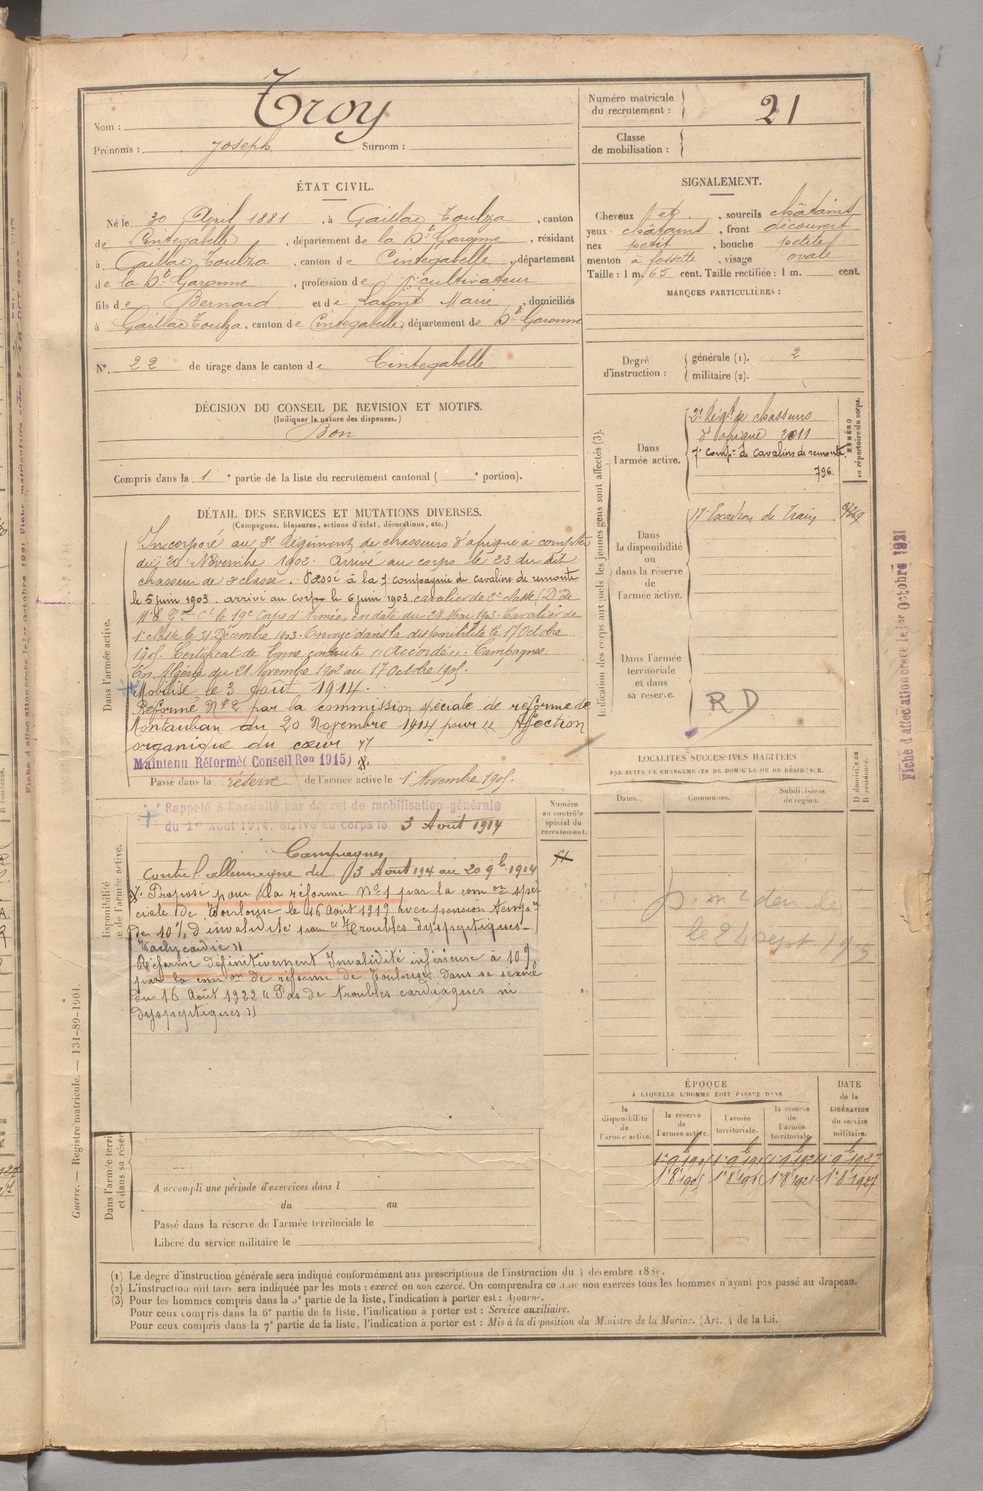 Nom : Troy
Prénoms : Joseph Surnom :
Numéro matricule du recrutement : 21
Classe de mobilisation :
ÉTAT CIVIL.
Né le 30 Avril 1881, à Gaillac Toulza, canton
de Cintegabelle, département de la Hte Garonne, résidant
à Gaillac Toulza, canton de Cintegabelle, département
de la Hte Garonne, profession de cultivateur
fils de Bernard et de Marie, domiciliés
à Gaillac Toulza, canton de Cintegabelle, département de Hte Garonne
N°. 22 de tirage dans le canton de Cintegabelle
SIGNALEMENT.
Cheveux , sourcils châtains
yeux châtains, front découvert
nez petit, bouche petite
menton à fossette, visage ovale
Taille : 1 m. 65 cent. Taille rectifiée : 1 m. cent.
MARQUES PARTICULIÈRES :
Degré d'instruction : générale (1). 2
militaire (2).
DÉCISION DU CONSEIL DE REVISION ET MOTIFS.
(Indiquer la nature des dispenses.)
Bon
Compris dans la 1e partie de la liste du recrutement cantonal ( e portion).
DÉTAIL DES SERVICES ET MUTATIONS DIVERSES.
(Campagnes, blessures, actions d'éclat, décorations, etc.)
Dans l'armée active.
Incorporé au Régiment de chasseurs d'afrique à compter
du 20 Novembre 1902. Arrivé au corps le 23 du dit
chasseur de 2e classe. Passé à la 7e compagnie de cavaliers de remonte
le 5 juin 1903. arrivé au corps le 6 juin 1903. cavalier de 2e classe (D de
Mr le Gal Ct le 19e Corps d'Armée, en date du 28 Mai 1903. Cavalier de
1e classe le 31 Décembre 1903. Envoyé dans la disponibilité le 17 Octobre
1905. Certificat de bonne conduite "Accordé". Campagnes:
En Algérie du 21 Novembre 1902 au 17 Octobre 1905.
Mobilisé le 3 août 1914.
Réformé N° 2 par la commission spéciale de réforme de
Montauban du 20 Novembre 1914 pour "Affection
organique du cœur"
Maintenu Réformé (Conseil Ron 1915)
Passé dans la réserve de l'armée active le 1 Novembre 1905.
Rappelé à l'activité par décret de mobilisation générale
du 1er Août 1914, arrivé au corps le 3 Août 1914
Campagnes
Contre l'allemagne du 3 Août 1914 au 20 9bre 1914
Proposé pour la réforme N° 1 par la com on spé-
ciale de Toulouse le 16 Août 1919 avec pension temp re
de 10% d'invalidité pour "Troubles dyspeptiques-
Tachycardie"
Réformé définitivement Invalidité inférieure à 10%
par la com on de réforme de Toulouse dans sa séance
du 16 Août 1922 "Pas de troubles cardiaques ni
dyspeptiques"
Numéro au contrôle spécial du recrutement.
Dans l'armée territ
et dans sa réser
A accompli une période d'exercices dans l
du au
Passé dans la réserve de l'armée territoriale le
Libéré du service militaire le
Indication des corps auxquels les jeunes gens sont affectés (3).
NUMÉRO au répertoire du corps.
Dans l'armée active.
2e Régt de chasseurs
d'afrique 2011
7e Compie de cavaliers de remonte
796
Dans la disponibilité ou dans la réserve de l'armée active.
17e Escadron du Train
Dans l'armée territoriale et dans sa réserve.
R D
LOCALITÉS SUCCESSIVES HABITÉES
PAR SUITE DE CHANGEMENTS DE DOMICILE OU DE RÉSIDENCE.
Dates. Communes. Subdivisions de région. D domicile ou R résidence.
ÉPOQUE
À LAQUELLE L'HOMME DOIT PASSER DANS
la disponibilité de l'armée active.
la réserve de l'armée active.
l'armée territoriale.
la réserve de l'armée territoriale.
DATE de la LIBÉRATION du service militaire.
Fiche d'affectation créée le 1er Octobre 1921
Guerre. — Registre matricule. — 131-89-1901.
(1) Le degré d'instruction générale sera indiqué conformément aux prescriptions de l'instruction du 4 décembre 1889.
(2) L'instruction militaire sera indiquée par les mots : exercé ou non exercé. On comprendra comme non exercés tous les hommes n'ayant pas passé au drapeau.
(3) Pour les hommes compris dans la 5e partie de la liste, l'indication à porter est : Ajourné.
Pour ceux compris dans la 6e partie de la liste, l'indication à porter est : Service auxiliaire.
Pour ceux compris dans la 7e partie de la liste, l'indication à porter est : Mis à la disposition du Ministre de la Marine. (Art. 4 de la loi.)